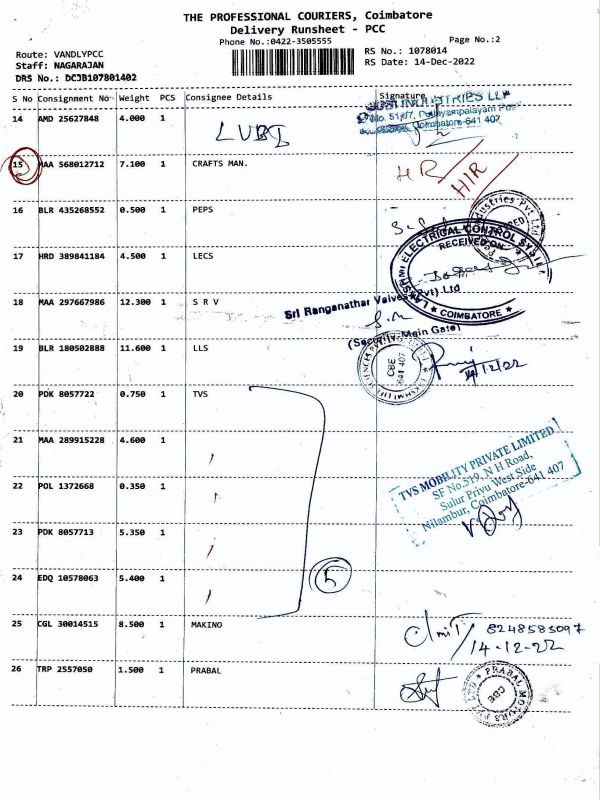 THE PROFESSIONAL COURIERS, Coimbatore
Delivery Runsheet - PCC
Phone No.:0422-3505555 Page No.:2
Route: VANDLYPCC RS No.: 1078014
Staff: NAGARAJAN RS Date: 14-Dec-2022
DRS No.: DCJB107801402
S No Consignment No Weight PCS Consignee Details Signature
14 AMD 25627848 4.000 1 LUBI
INDUSTRIES LLP
Coimbatore-641 407
15 MAA 568012712 7.100 1 CRAFTS MAN. HR HIR
16 BLR 435268552 0.500 1 PEPS
17 HRD 389841184 4.500 1 LECS
ELECTRICAL CONTROL
RECEIVED ON
★ COIMBATORE ★
18 MAA 297667986 12.300 1 S R V
Sri Ranganathar Valves (Pvt) Ltd
(Security-Main Gate)
19 BLR 180502888 11.600 1 LLS
CBE
641 407
14/12/22
20 PDK 8057722 0.750 1 TVS
21 MAA 289915228 4.600 1
TVS MOBILITY PRIVATE LIMITED
SF No.519, N H Road,
Sulur Privu West Side
Nilambur, Coimbatore-641 407
22 POL 1372668 0.350 1
23 PDK 8057713 5.350 1
24 EDQ 10578063 5.400 1
5
25 CGL 30014515 8.500 1 MAKINO
8248583097
14-12-22
26 TRP 2557050 1.500 1 PRABAL
PRABAL MOTORS PVT LTD
CBE